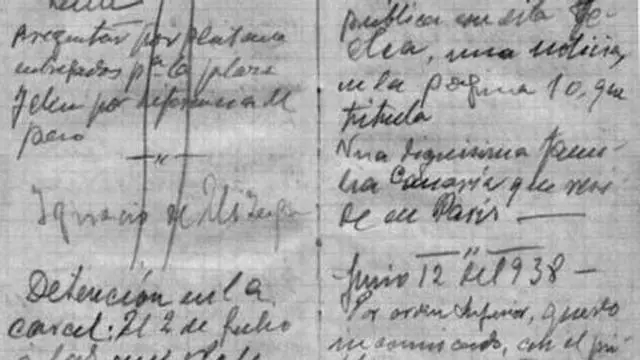 Preguntar por platano
entregados pª la plaza
Idem por diferencia de
peso
Ignacio de
Detención en la
carcel: El 2 de Julio
publica con esta fe-
cha, una noticia,
en la pagina 10, que
titula
Una dignisima fami-
lia Canaria que resi-
de en Paris
Junio 12 del 938 —
Por orden superior, quedo
incomunicado, con el pri-